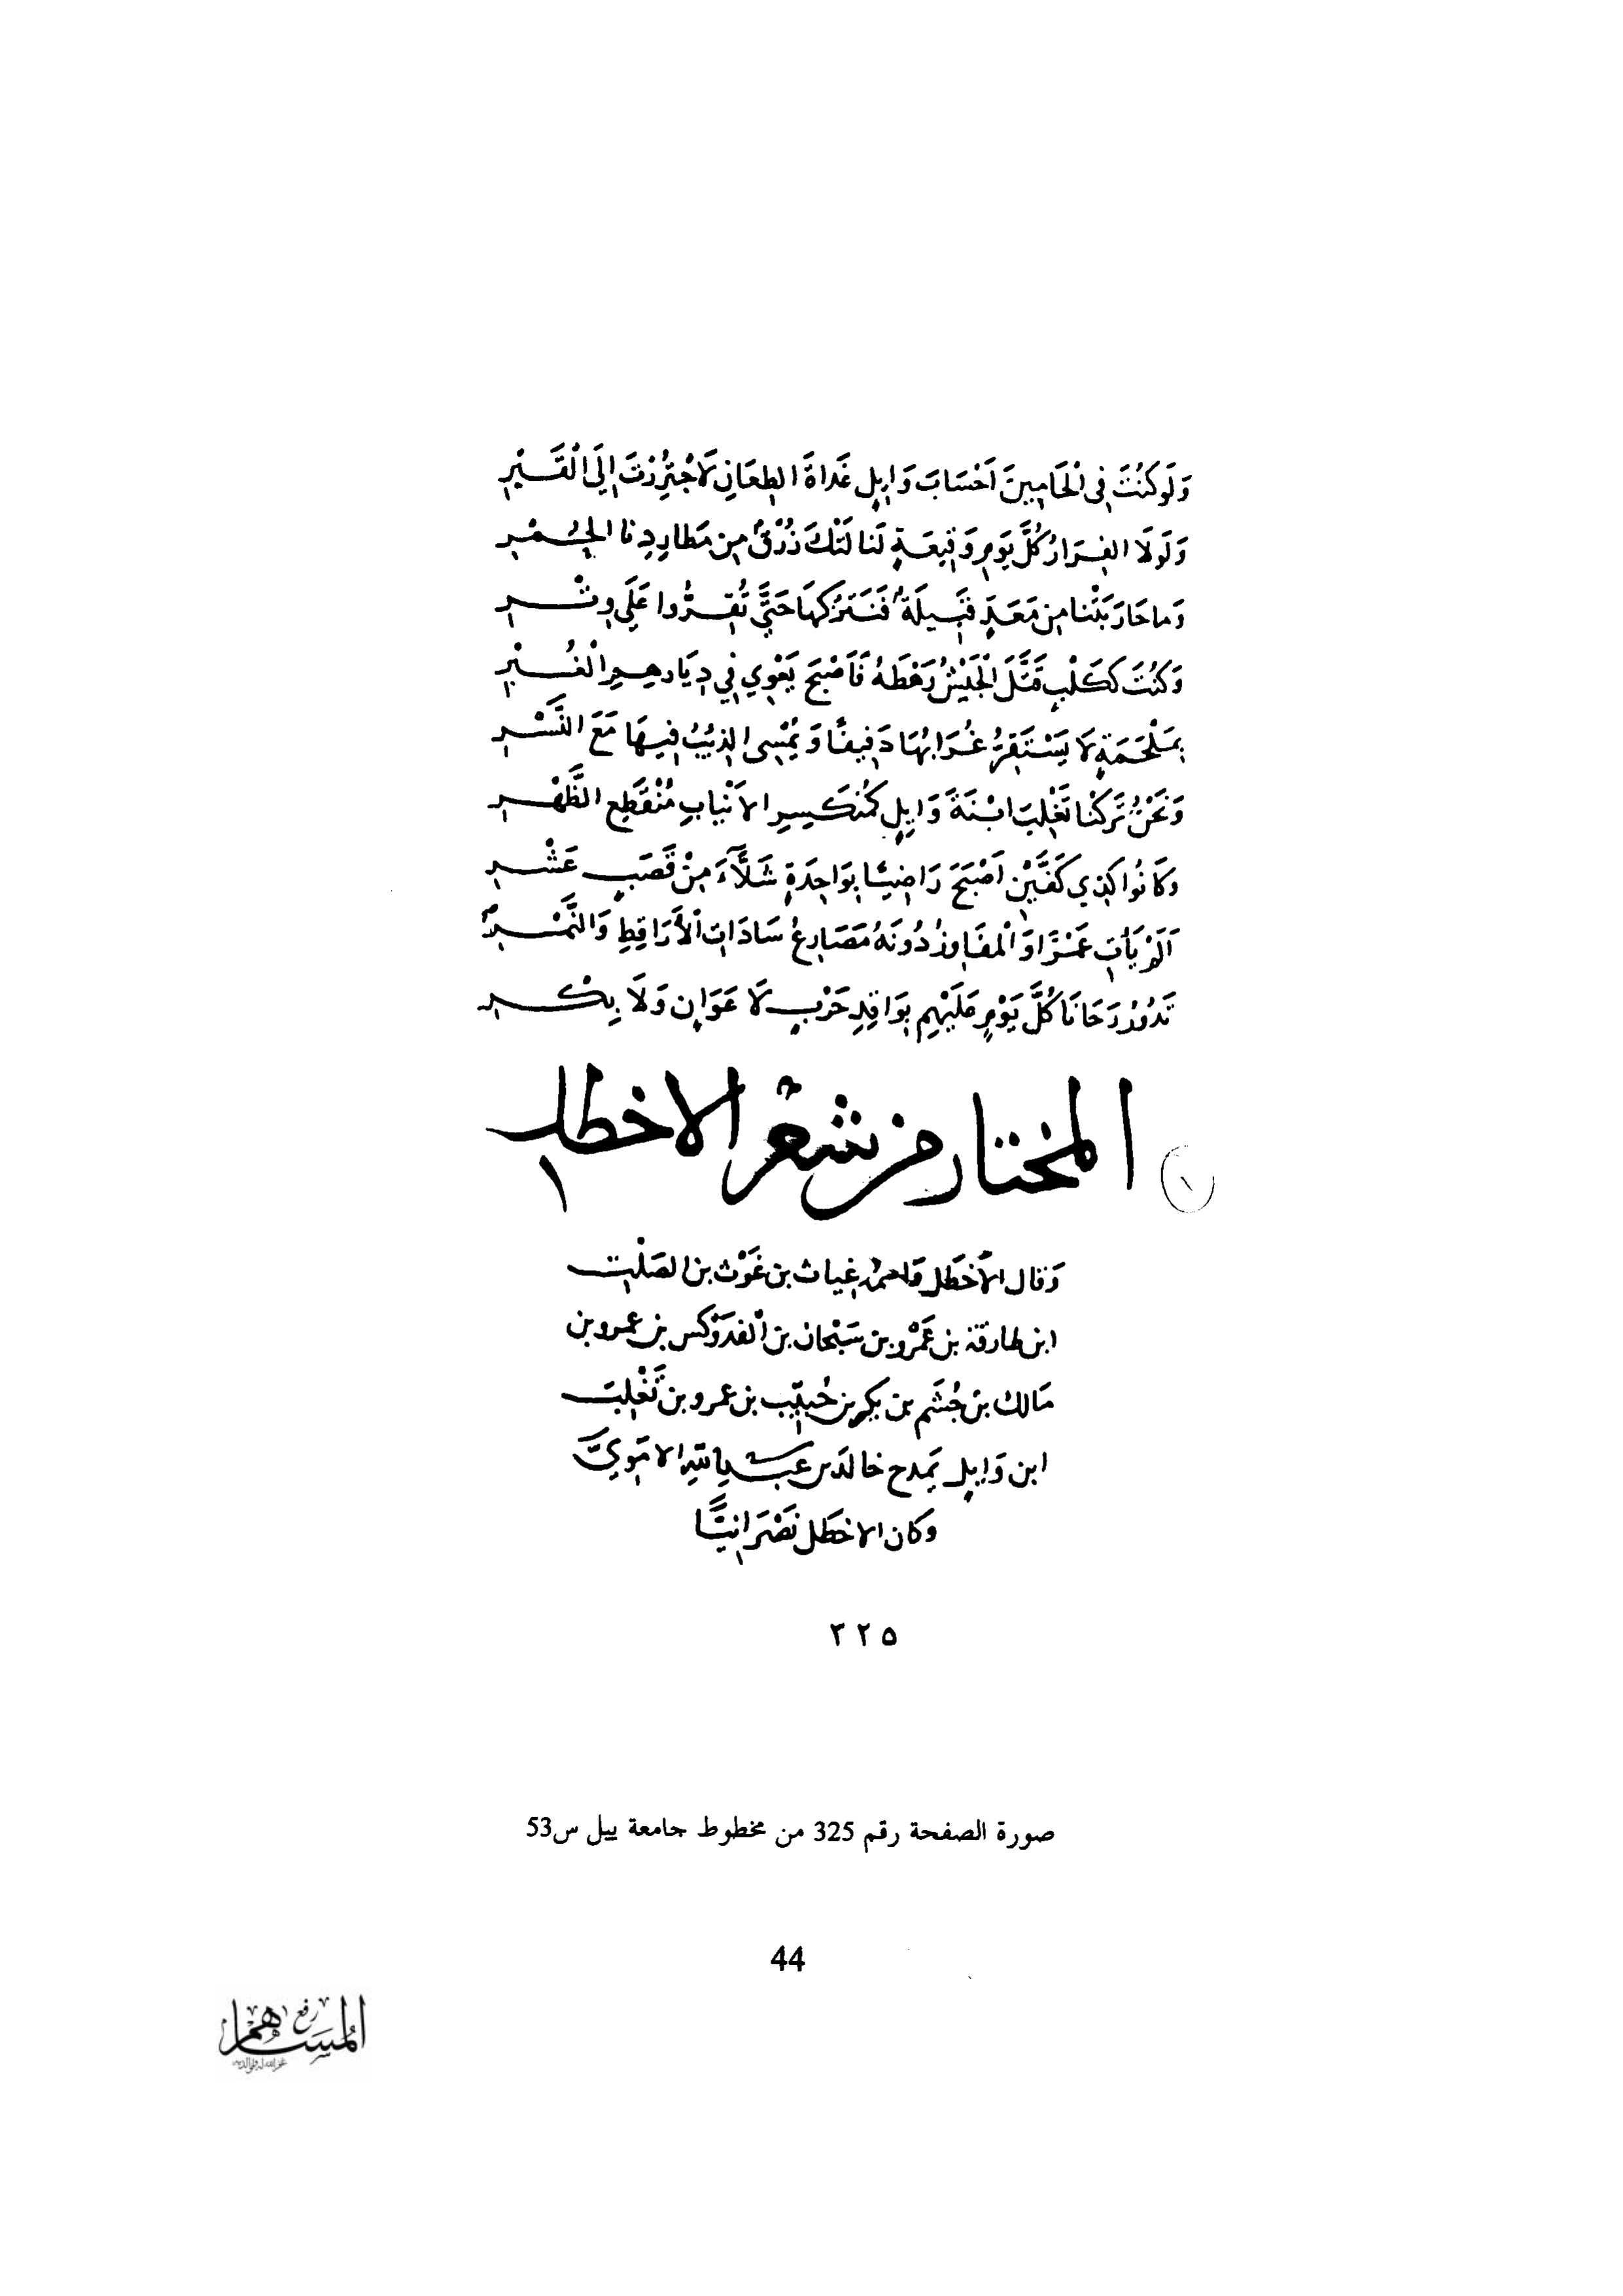 وَلَو كُنْتَ فِي الْحَامِينَ اَحْسَابَ وَايِلٍ غَدَاةَ الطِعَانِ لَاجْتُرِزْتَ اِلَى الْقَسْرِ
وَلَولَا الفِرَارُ كُلَّ يَومِ وَقِيعَةٍ لَنَا لَتْكَ زُرْقٌ مِن مَطَارِدِنا الحُمْرِ
وَما حَارَبَتْنا مِن مَعَدٍّ قَبِيلَةٌ فَنَتْرُكَهَا حَتَّى تُقِرُّوا عَلَى وِتْرِ
وَكُنْتَ كَكَلْبٍ قَتَّلَ الْجَيْشُ رَهْطَهُ فَاَصْبَحَ يَعْوِي فِي دِيَارِهِمِ الْغُبْرِ
بِمَلْحَمَةٍ لَا يَسْتَقِرُّ غُرَابُهَا دَفِيفًا وَيُمْسِى الذِيبُ فِيهَا مَعَ النَّسْرِ
وَنَحْنُ تَرَكْنا تَغْلِبَ ابْنَةَ وَايِلٍ كَمُنكَسِرِ الانْيابِ مُنْقَطِعِ الظَّهْرِ
وَكَانُوا كَذِي كَفَّيْنِ اَصْبَحَ رَاضِيًا بِوَاحِدَةٍ شَلَّآءَ مِنْ قَصَبٍ عَشْرِ
اَلَمْ يَأْتِ عَمْرًا وَالْمفَاوِزُ دُونَهُ مَصَارِعُ سَادَاتِ الْأَرَاقِطِ وَالنَّمْرِ
تَدُورُ رَحَانَا كُلَّ يَوْمٍ عَلَيْهِم بِوَاقِدِ حَرْبٍ لَا عَوَانٍ وَلَا بِكْرِ
المختار من شعر الاخطل
١
١
وَقال الاَخطَل واسمه غِياث بن غَوْث بن الصَلْت
ابن طارقة بن عَمْرو بن سَيْحان بن الْفَدَوْكس بن عمرو بن
مَالك بن جُشَم بن بكر بن حُبَيّب بن عمرو بن تَغْلِبَ
ابن وَايِلٍ يَمدح خالدَ بن عبد الله الامَوِيَّ
وكان الاخطَل نَصْرَانِيًّا
٣٢٥
صورة الصفحة رقم 325 من مخطوط جامعة ييل س53
44
المساهم
رفع
غفر الله له ولوالديه